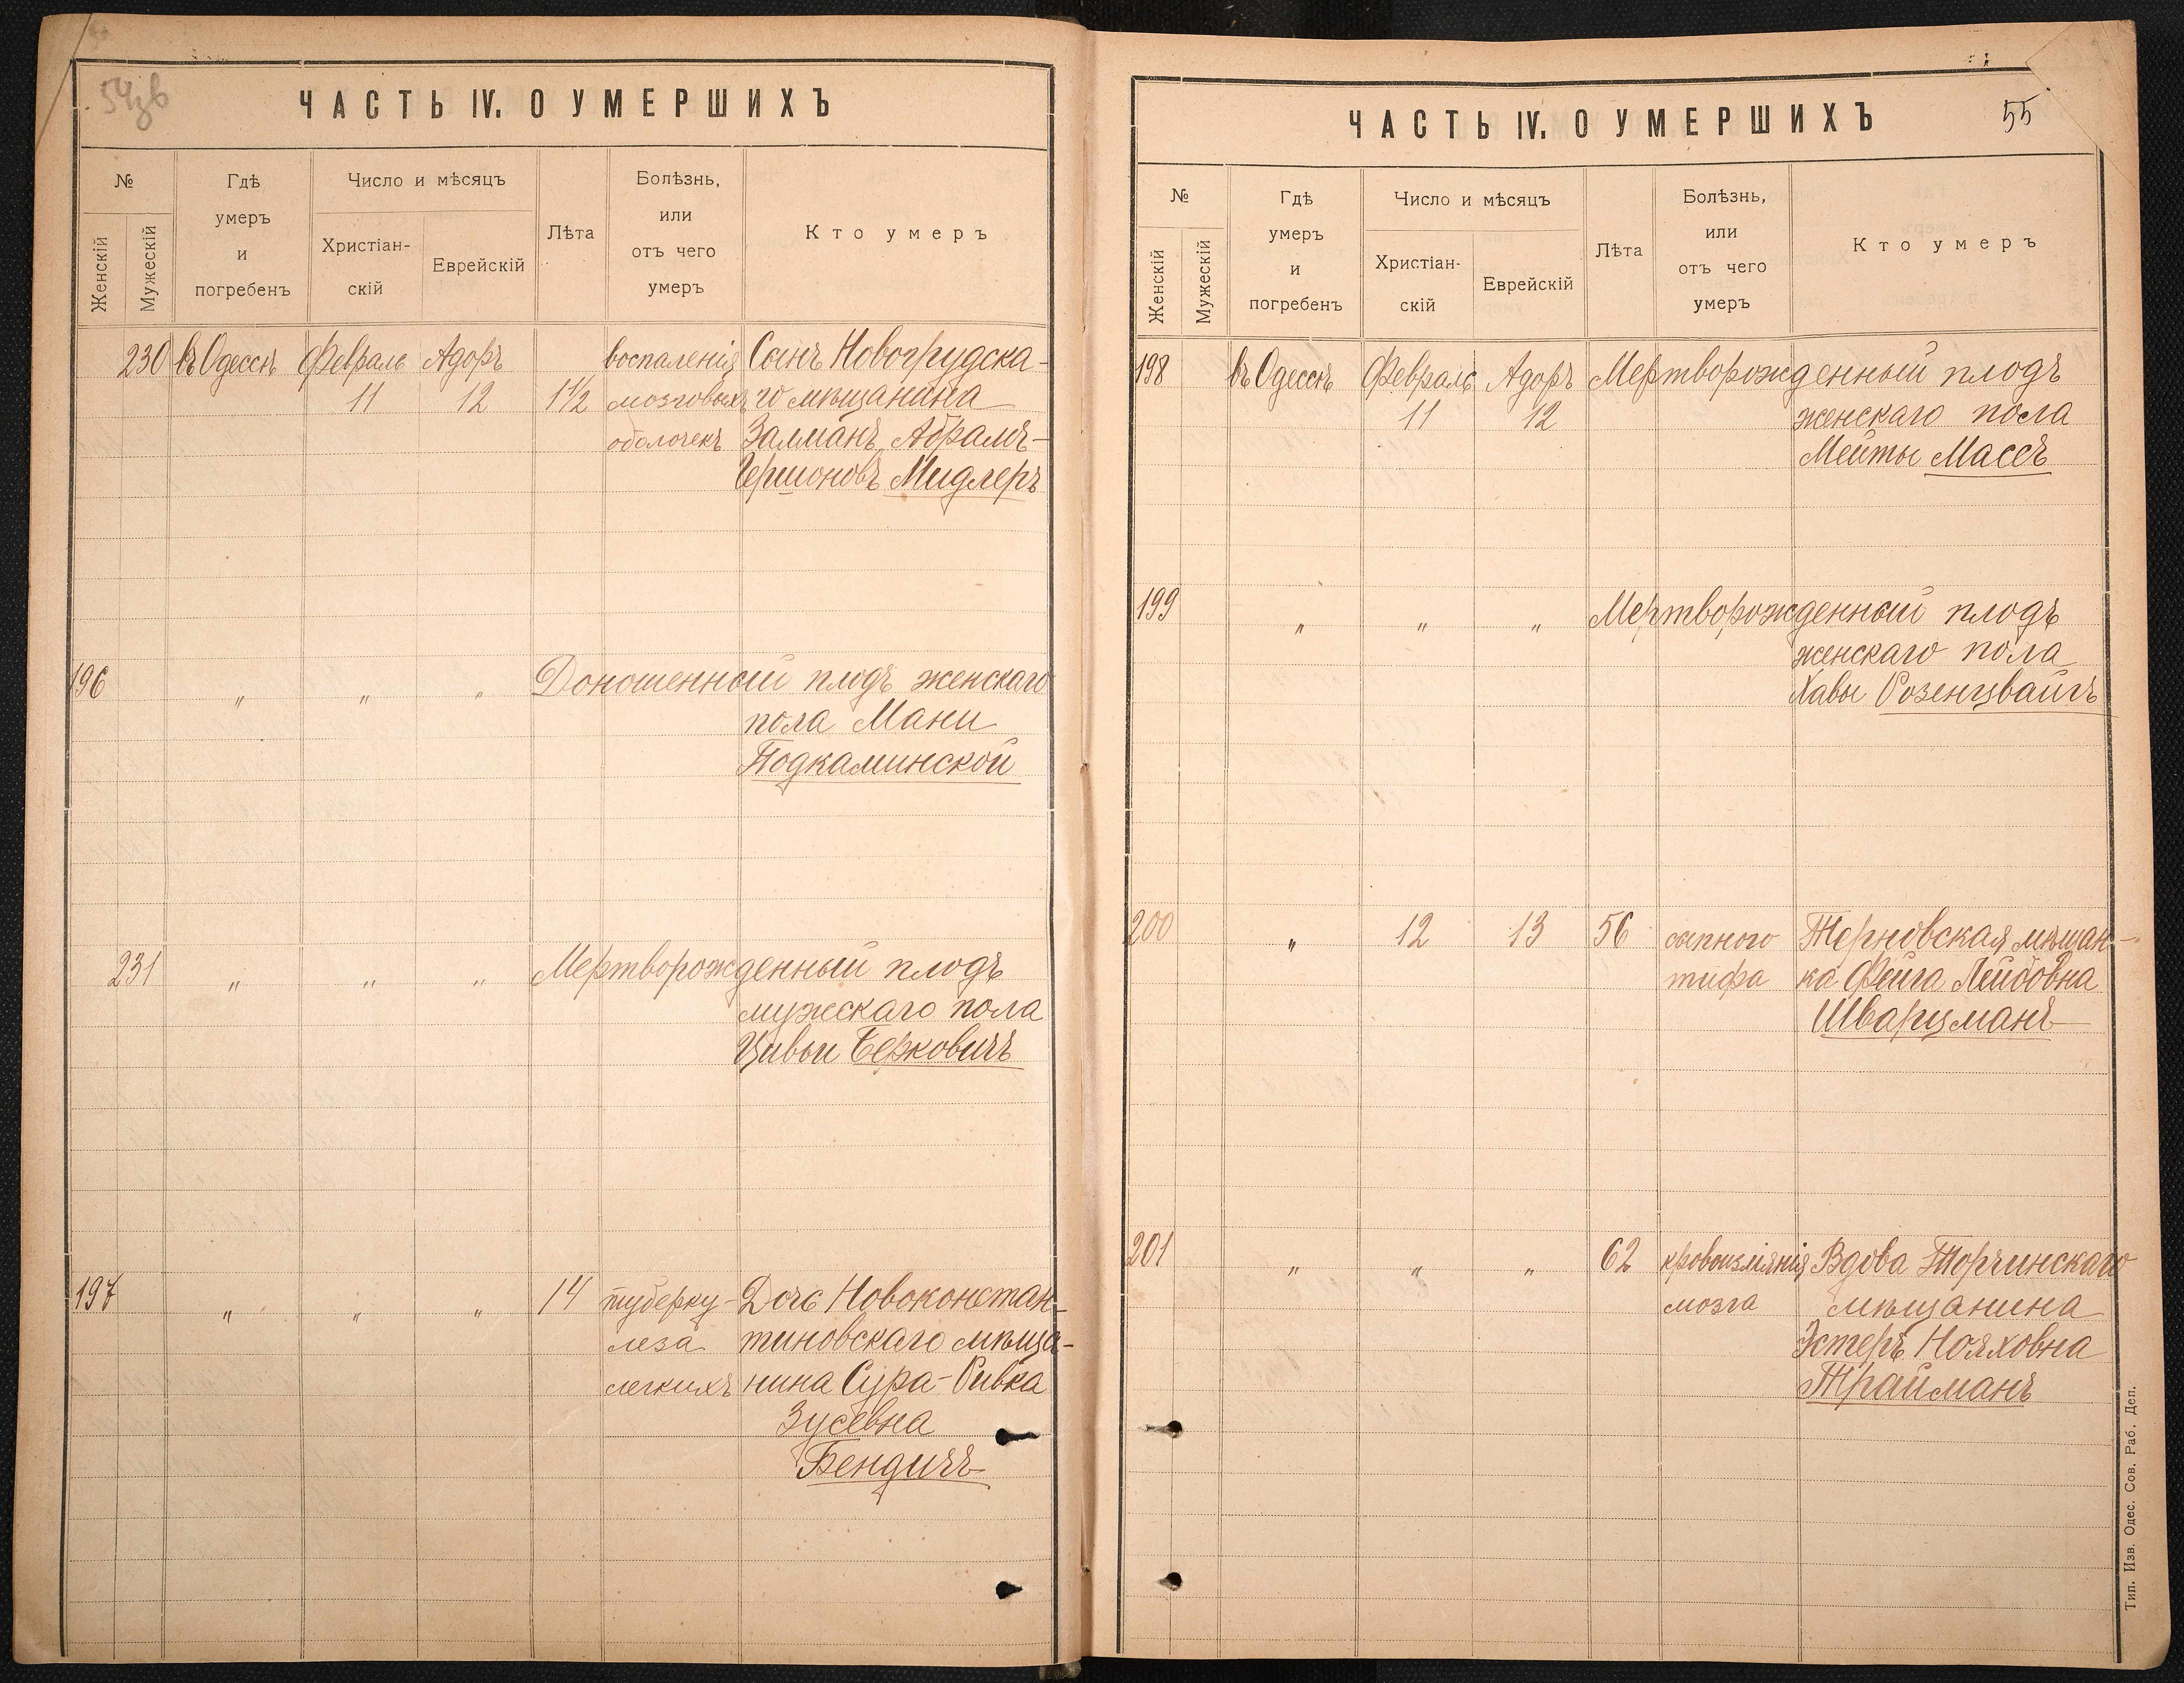 54зв
ЧАСТЬ IV. О УМЕРШИХЪ
№
Женскій
Мужескій
Гдѣ
умеръ
и
погребенъ
Число и мѣсяцъ
Христіан-
скій
Еврейскій
Лѣта
Болѣзнь,
или
отъ чего
умеръ
Кто умеръ
230 въ Одессѣ Февраль Адоръ воспаленія Сынъ Новогрудска-
11 12 1½ мозговыхъ го мѣщанина
оболочекъ Залманъ Абрамъ-
Гершоновъ Мидлеръ
196 " " " Доношенный плодъ женскаго
пола Мани
Подкаминской
231 " " " Мертворожденный плодъ
мужескаго пола
Цивьи Берковичъ
197 " " " 14 туберку- Дочь Новоконстан-
леза тиновскаго мѣща-
легкихъ нина Сура-Ривка
Зусевна
Бендичъ
ЧАСТЬ IV. О УМЕРШИХЪ
55
№
Женскій
Мужескій
Гдѣ
умеръ
и
погребенъ
Число и мѣсяцъ
Христіан-
скій
Еврейскій
Лѣта
Болѣзнь,
или
отъ чего
умеръ
Кто умеръ
198 въ Одессѣ Февраль Адоръ Мертворожденный плодъ
11 12 женскаго пола
Мейты Массъ
199 " " " Мертворожденный плодъ
женскаго пола
Хавы Розенцвайгъ
200 " 12 13 56 сыпного Терновская мѣщан-
тифа ка Фейга Лейбовна
Шварцманъ
201 " " " 62 кровоизліянія Вдова Торчинскаго
мозга мѣщанина
Эстеръ Нояховна
Трайманъ
Тип. Изв. Одес. Сов. Раб. Деп.